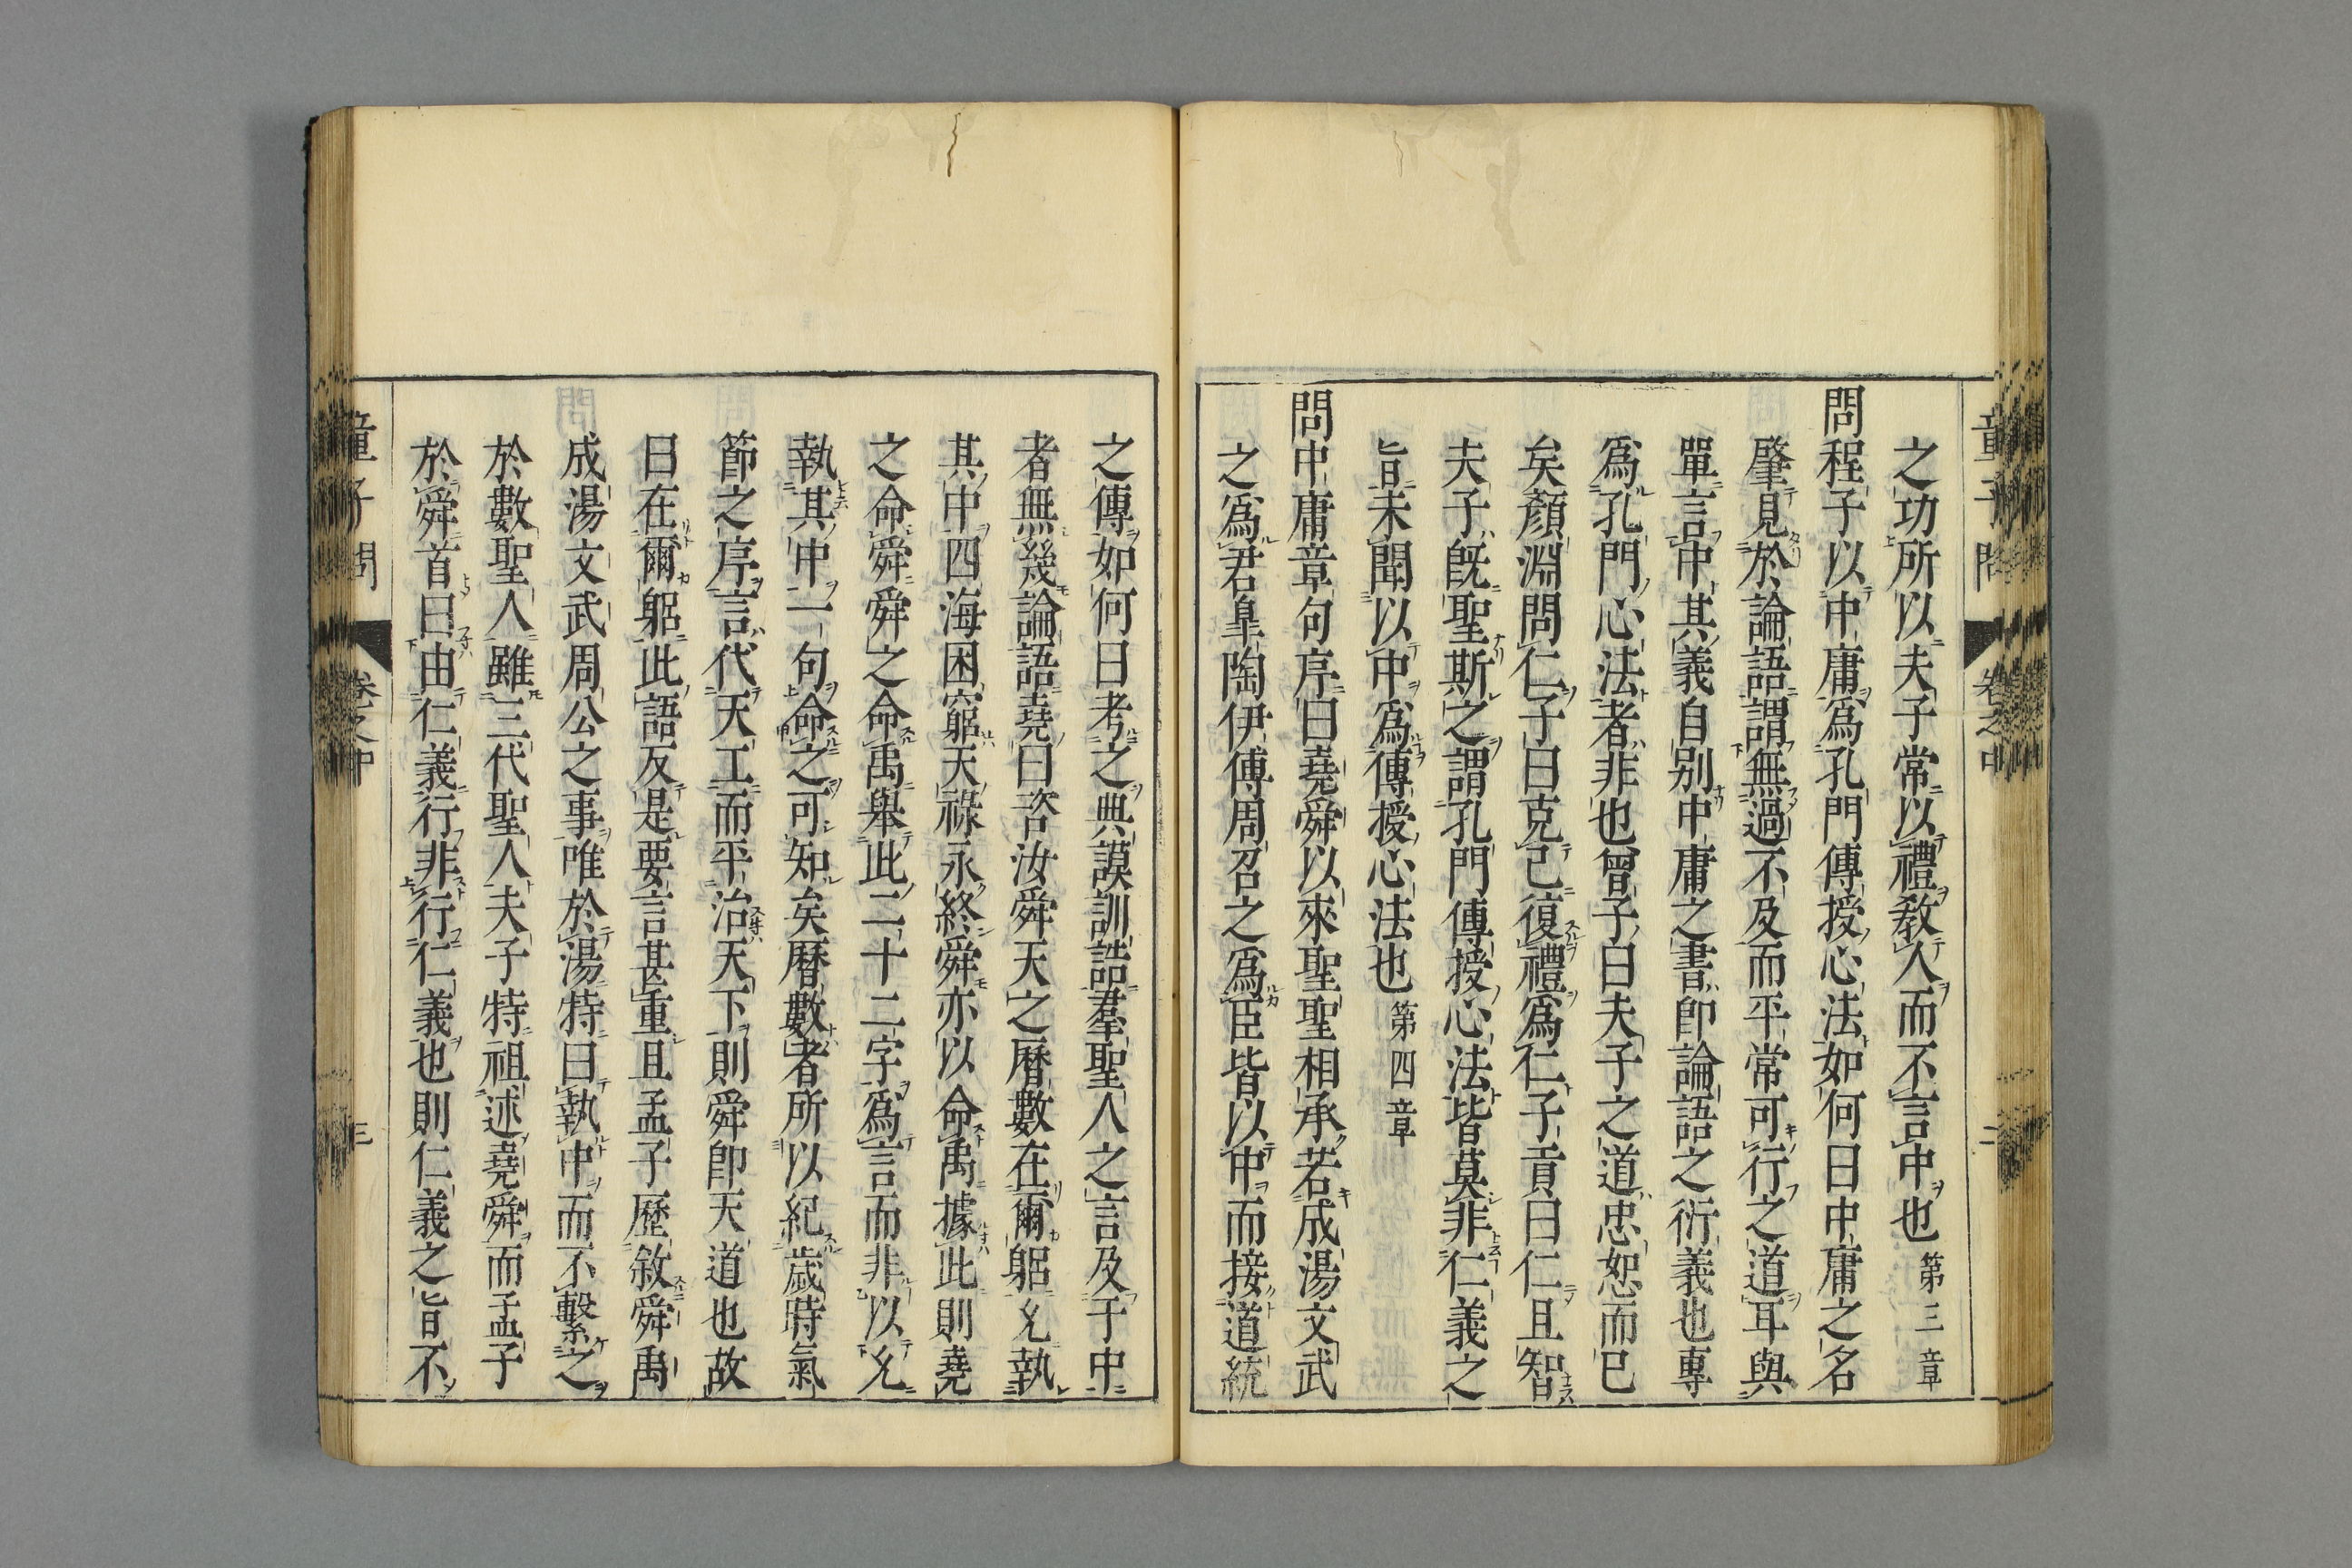 童子問 卷之中 二
之功所以夫子常以禮教人而不言中也 第三章
問程子以中庸爲孔門傳授心法如何曰中庸之名
肇見於論語謂無過不及而平常可行之道耳與
單言中其義自别中庸之書即論語之衍義也專
爲孔門心法者非也曾子曰夫子之道忠恕而已
矣顏淵問仁子曰克己復禮爲仁子貢曰仁且智
夫子既聖斯之謂孔門傳授心法皆莫非仁義之
旨未聞以中爲傳授心法也 第四章
問中庸章句序曰堯舜以來聖聖相承若成湯文武
之爲君皐陶伊傅周召之爲臣皆以中而接道統
之傳如何曰考之典謨訓誥羣聖人之言及于中
者無幾論語堯曰咨汝舜天之曆數在爾躬允執
其中四海困窮天祿永終舜亦以命禹據此則堯
之命舜舜之命禹舉此二十二字爲言而非以允
執其中一句命之可知矣曆數者所以紀歲時氣
節之序言代天工而平治天下則舜即天道也故
曰在爾躬此語反是要言甚重且孟子歷敘舜禹
成湯文武周公之事唯於湯特曰執中而不繫之
於數聖人雖三代聖人夫子特祖述堯舜而孟子
於舜首曰由仁義行非行仁義也則仁義之旨不
童子問 卷之中 三